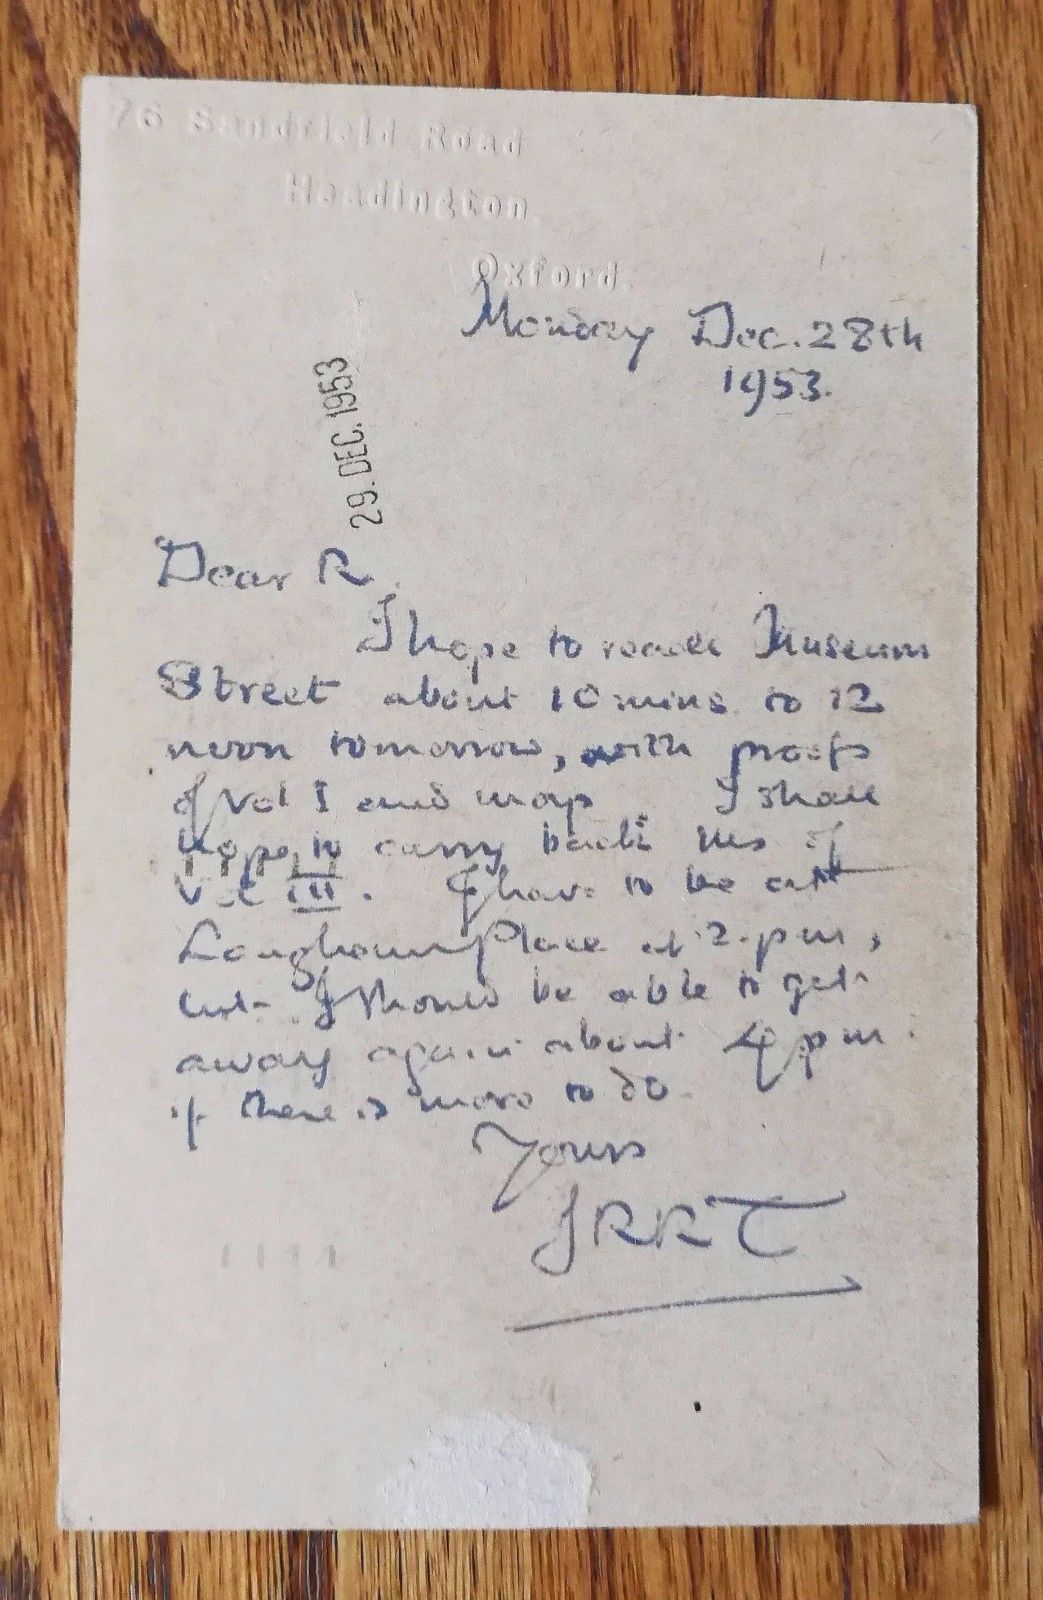 76 Sandfield Road
Headington.
Oxford.
Monday Dec. 28th
1953.
29. DEC. 1953
Dear R.
I hope to reach Museum
Street about 10 mins to 12
noon tomorrow, with proofs
of Vol I and map. I shall
hope to carry back Ms of
Vol III. I have to be at
Langham Place at 2.pm,
but I should be able to get
away again about 4 pm.
if there is more to do.
Yours
JRRT